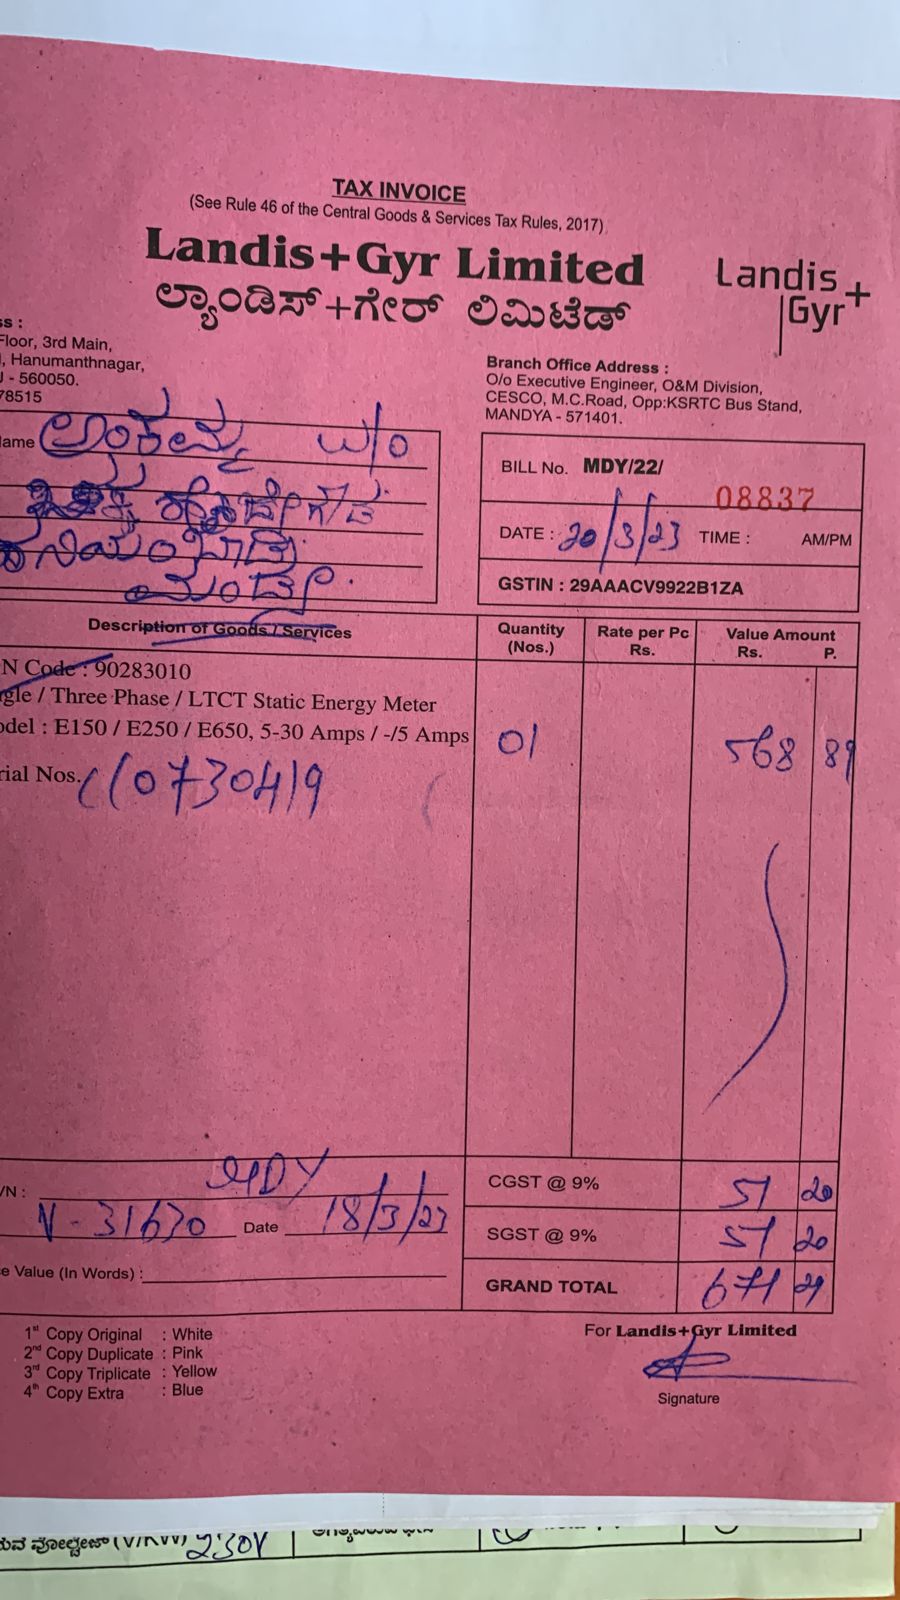 TAX INVOICE
(See Rule 46 of the Central Goods & Services Tax Rules, 2017)
Landis+Gyr Limited
ಲ್ಯಾಂಡಿಸ್+ಗೇರ್ ಲಿಮಿಟೆಡ್
Landis+
Gyr
ss :
Floor, 3rd Main,
, Hanumanthnagar,
- 560050.
78515
Branch Office Address :
O/o Executive Engineer, O&M Division,
CESCO, M.C.Road, Opp:KSRTC Bus Stand,
MANDYA - 571401.
ame ಅಂಕಮ್ಮ W/o
ಮಂಡ್ಯ.
BILL No. MDY/22/ 08837
DATE : 20/3/23 TIME : AM/PM
GSTIN : 29AAACV9922B1ZA
Description of Goods / Services Quantity (Nos.) Rate per Pc Rs. Value Amount Rs. P.
N Code : 90283010
gle / Three Phase / LTCT Static Energy Meter
odel : E150 / E250 / E650, 5-30 Amps / -/5 Amps 01 568 89
rial Nos. 110730419
/N : MDY
N - 31630 Date 18/3/23
e Value (In Words) :
CGST @ 9% 51 20
SGST @ 9% 51 20
GRAND TOTAL 671 29
1st Copy Original : White
2nd Copy Duplicate : Pink
3rd Copy Triplicate : Yellow
4th Copy Extra : Blue
For Landis+Gyr Limited
Signature
ವೋಲ್ಟೇಜ್ (V/KW) 230V